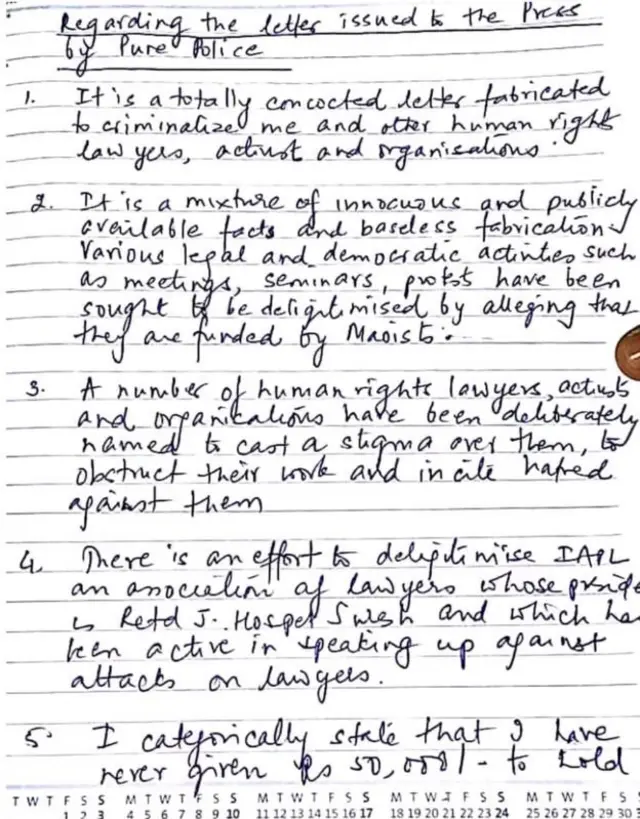 Regarding the letter issued to the Press
by Pune Police
1. It is a totally concocted letter fabricated
to criminalize me and other human right
lawyers, activist and organisations.
2. It is a mixture of innocuous and publicly
available facts and baseless fabrication.
Various legal and democratic activities such
as meetings, seminars, protests have been
sought to be deligitimised by alleging that
they are funded by Maoists.
3. A number of human rights lawyers, activists
and organisations have been deliberately
named to cast a stigma over them, to
obstruct their work and incite hatred
against them
4. There is an effort to delegitimise IAPL
an association of lawyers whose presi
is Retd J. Hosbet Suresh and which ha
been active in speaking up against
attacks on lawyers.
5. I categorically state that I have
never given Rs 50,000/- to
T W T F S S M T W T F S S M T W T F S S M T W T F S S M T W T F S
1 2 3 4 5 6 7 8 9 10 11 12 13 14 15 16 17 18 19 20 21 22 23 24 25 26 27 28 29 30